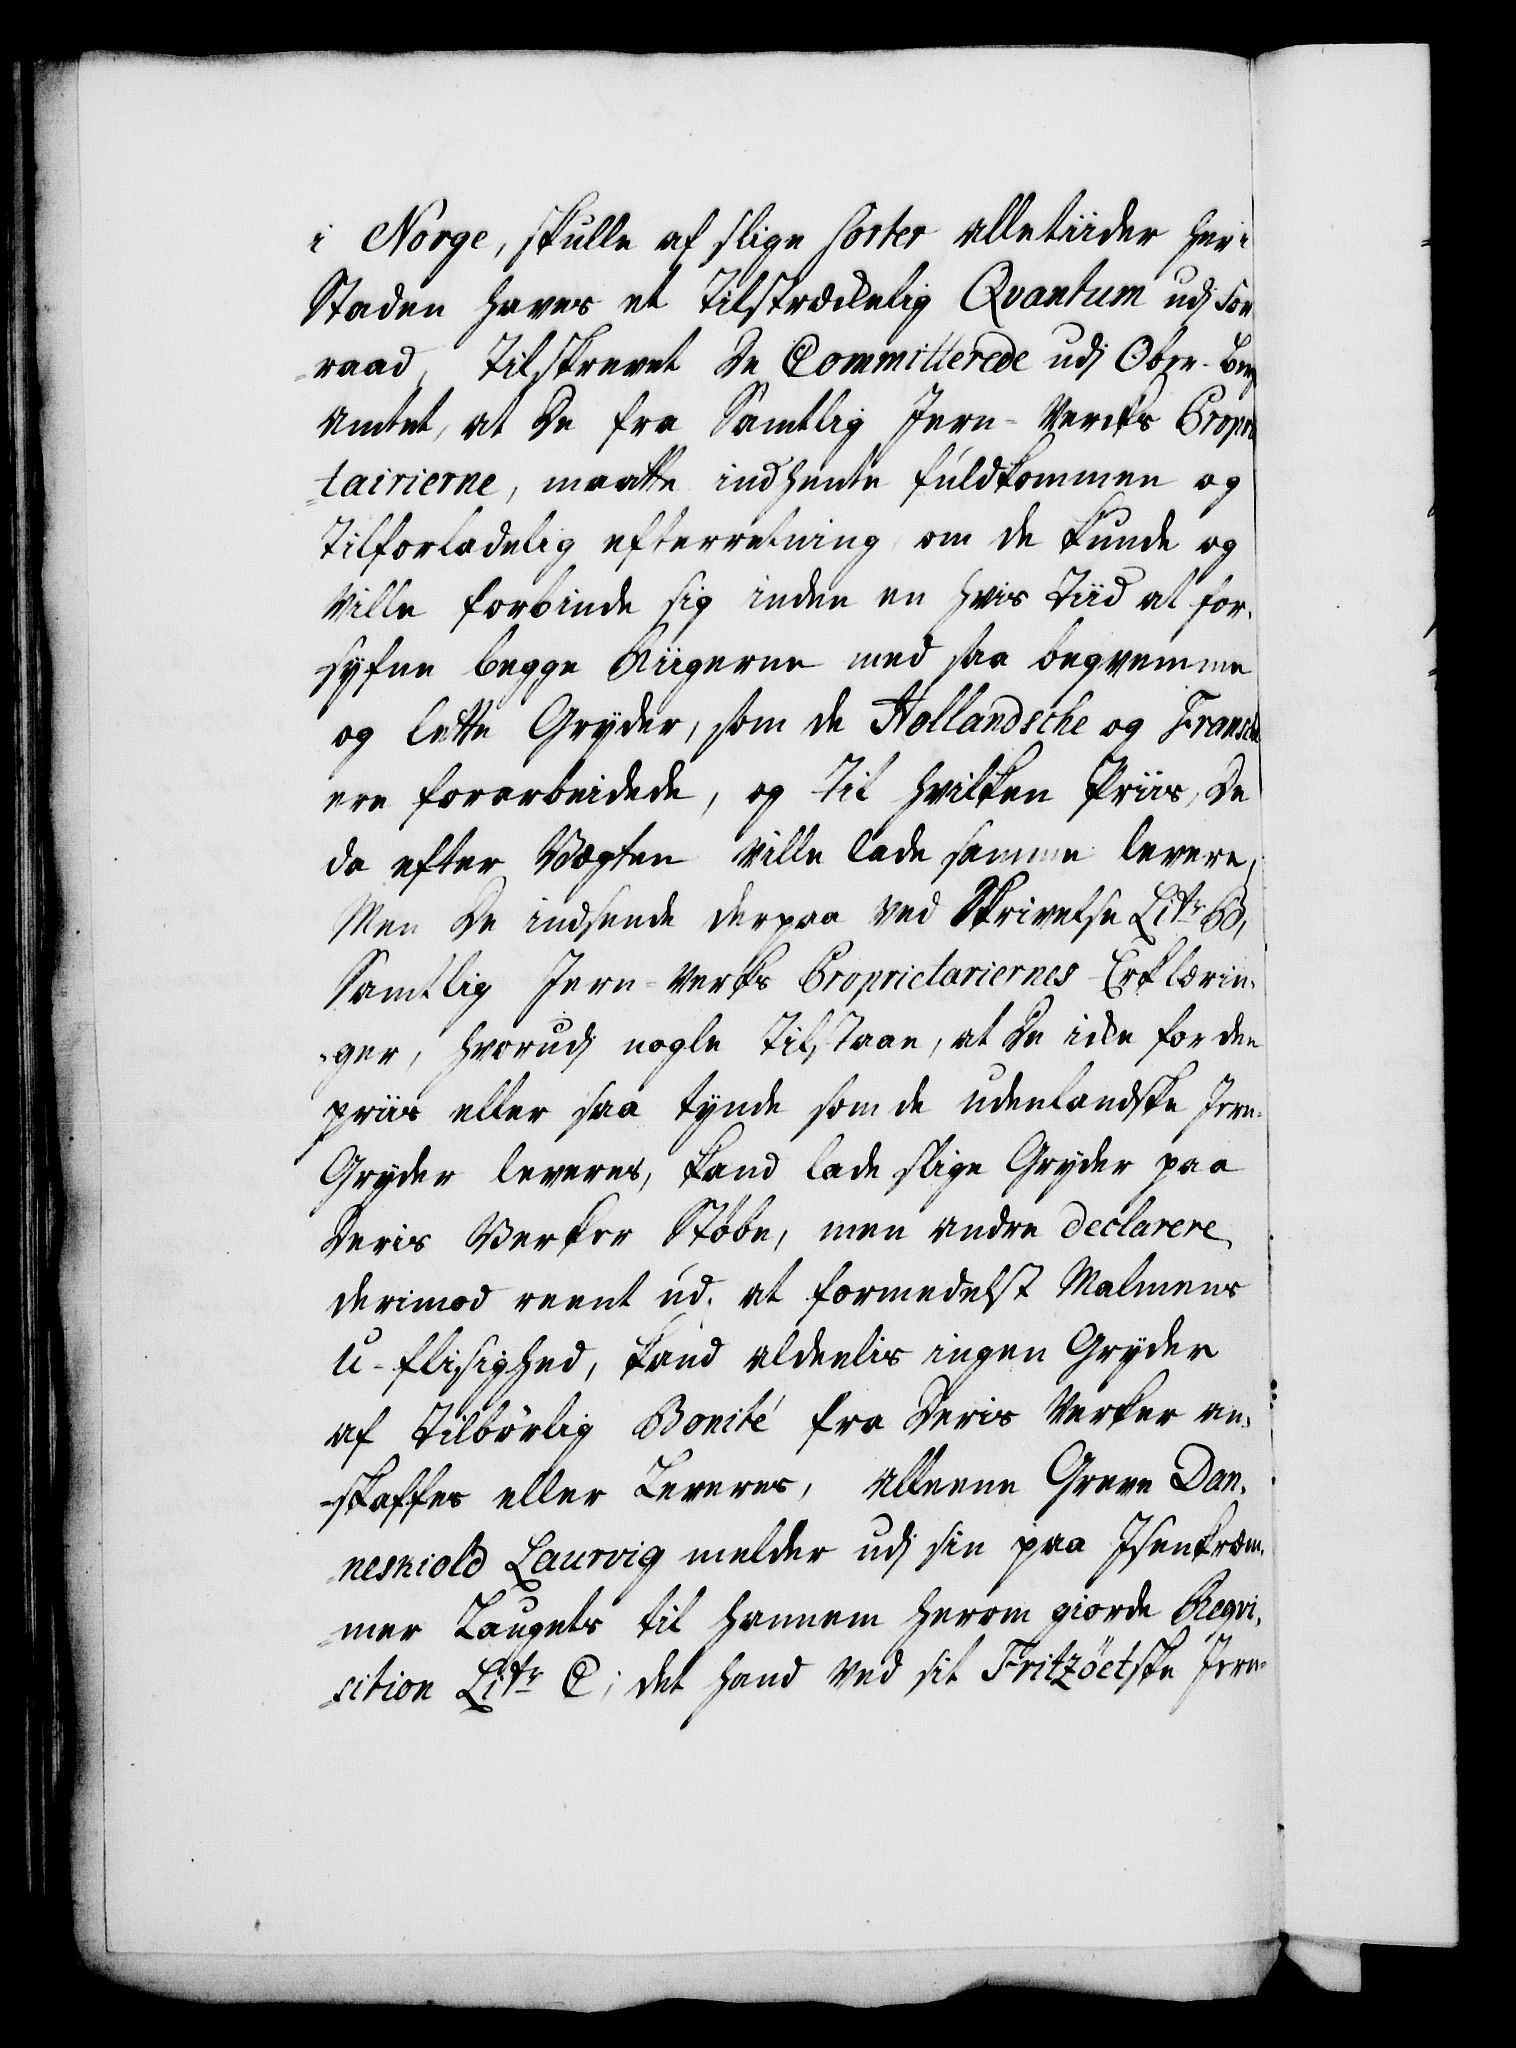 i Norge, skulle af slige sorter alletiider her i
Staden haves et tilstræckelig Qvantum udj for
-raad, tilskrevet De Committerede udj Ober-Berg
Amtet, at De fra Samtlig Jern-Vercks Propri
-tairierne, maatte indhente fuldkommen og
tilforladelig efterretning om de kunde og
ville forbinde sig inden en hvis Tiid at for-
-syfne begge Riigerne med saa beqvemme
og lette Gryder, som de Hollandsche og Fransche
ere forarbeidede, og til hvilken Priis, De
da efter Vægten ville lade samme levere;
Men De indsende derpaa ved Skrivelse Litr B,
Samtlig Jern-Verks Proprietariernes Erklærin-
-ger, hvorudj nogle tilstaae, at De icke for den
priis eller saa tynde som de udenlandske Jern-
Gryder leveres, kand lade slige Gryder paa
Deris Verker Støbe, men andre declarere
derimod reent ud, at formedelst Malmens
U-flisighed, kand aldeelis ingen Gryder
af tilbørlig Bonité fra Deris Verker an-
-skaffes eller Leveres, alleene Greve Dan-
neskiold Laurvig melder udj sin paa Isenkræm-
-mer Laugets til hannem herom giorde Reqvi-
-sition Litr C; det hand ved sit Fritzöetske Jern-